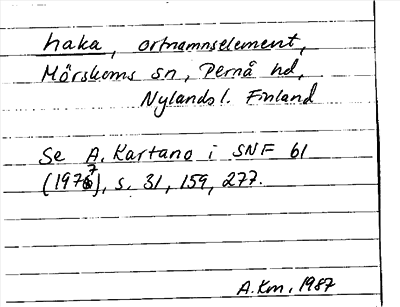 haka, ortnamnselement,
Mörskoms sn, Pernå hd,
Nylands l. Finland
Se A. Kartano i SNF 61
(1977), s. 31, 159, 277.
A.Km, 1987